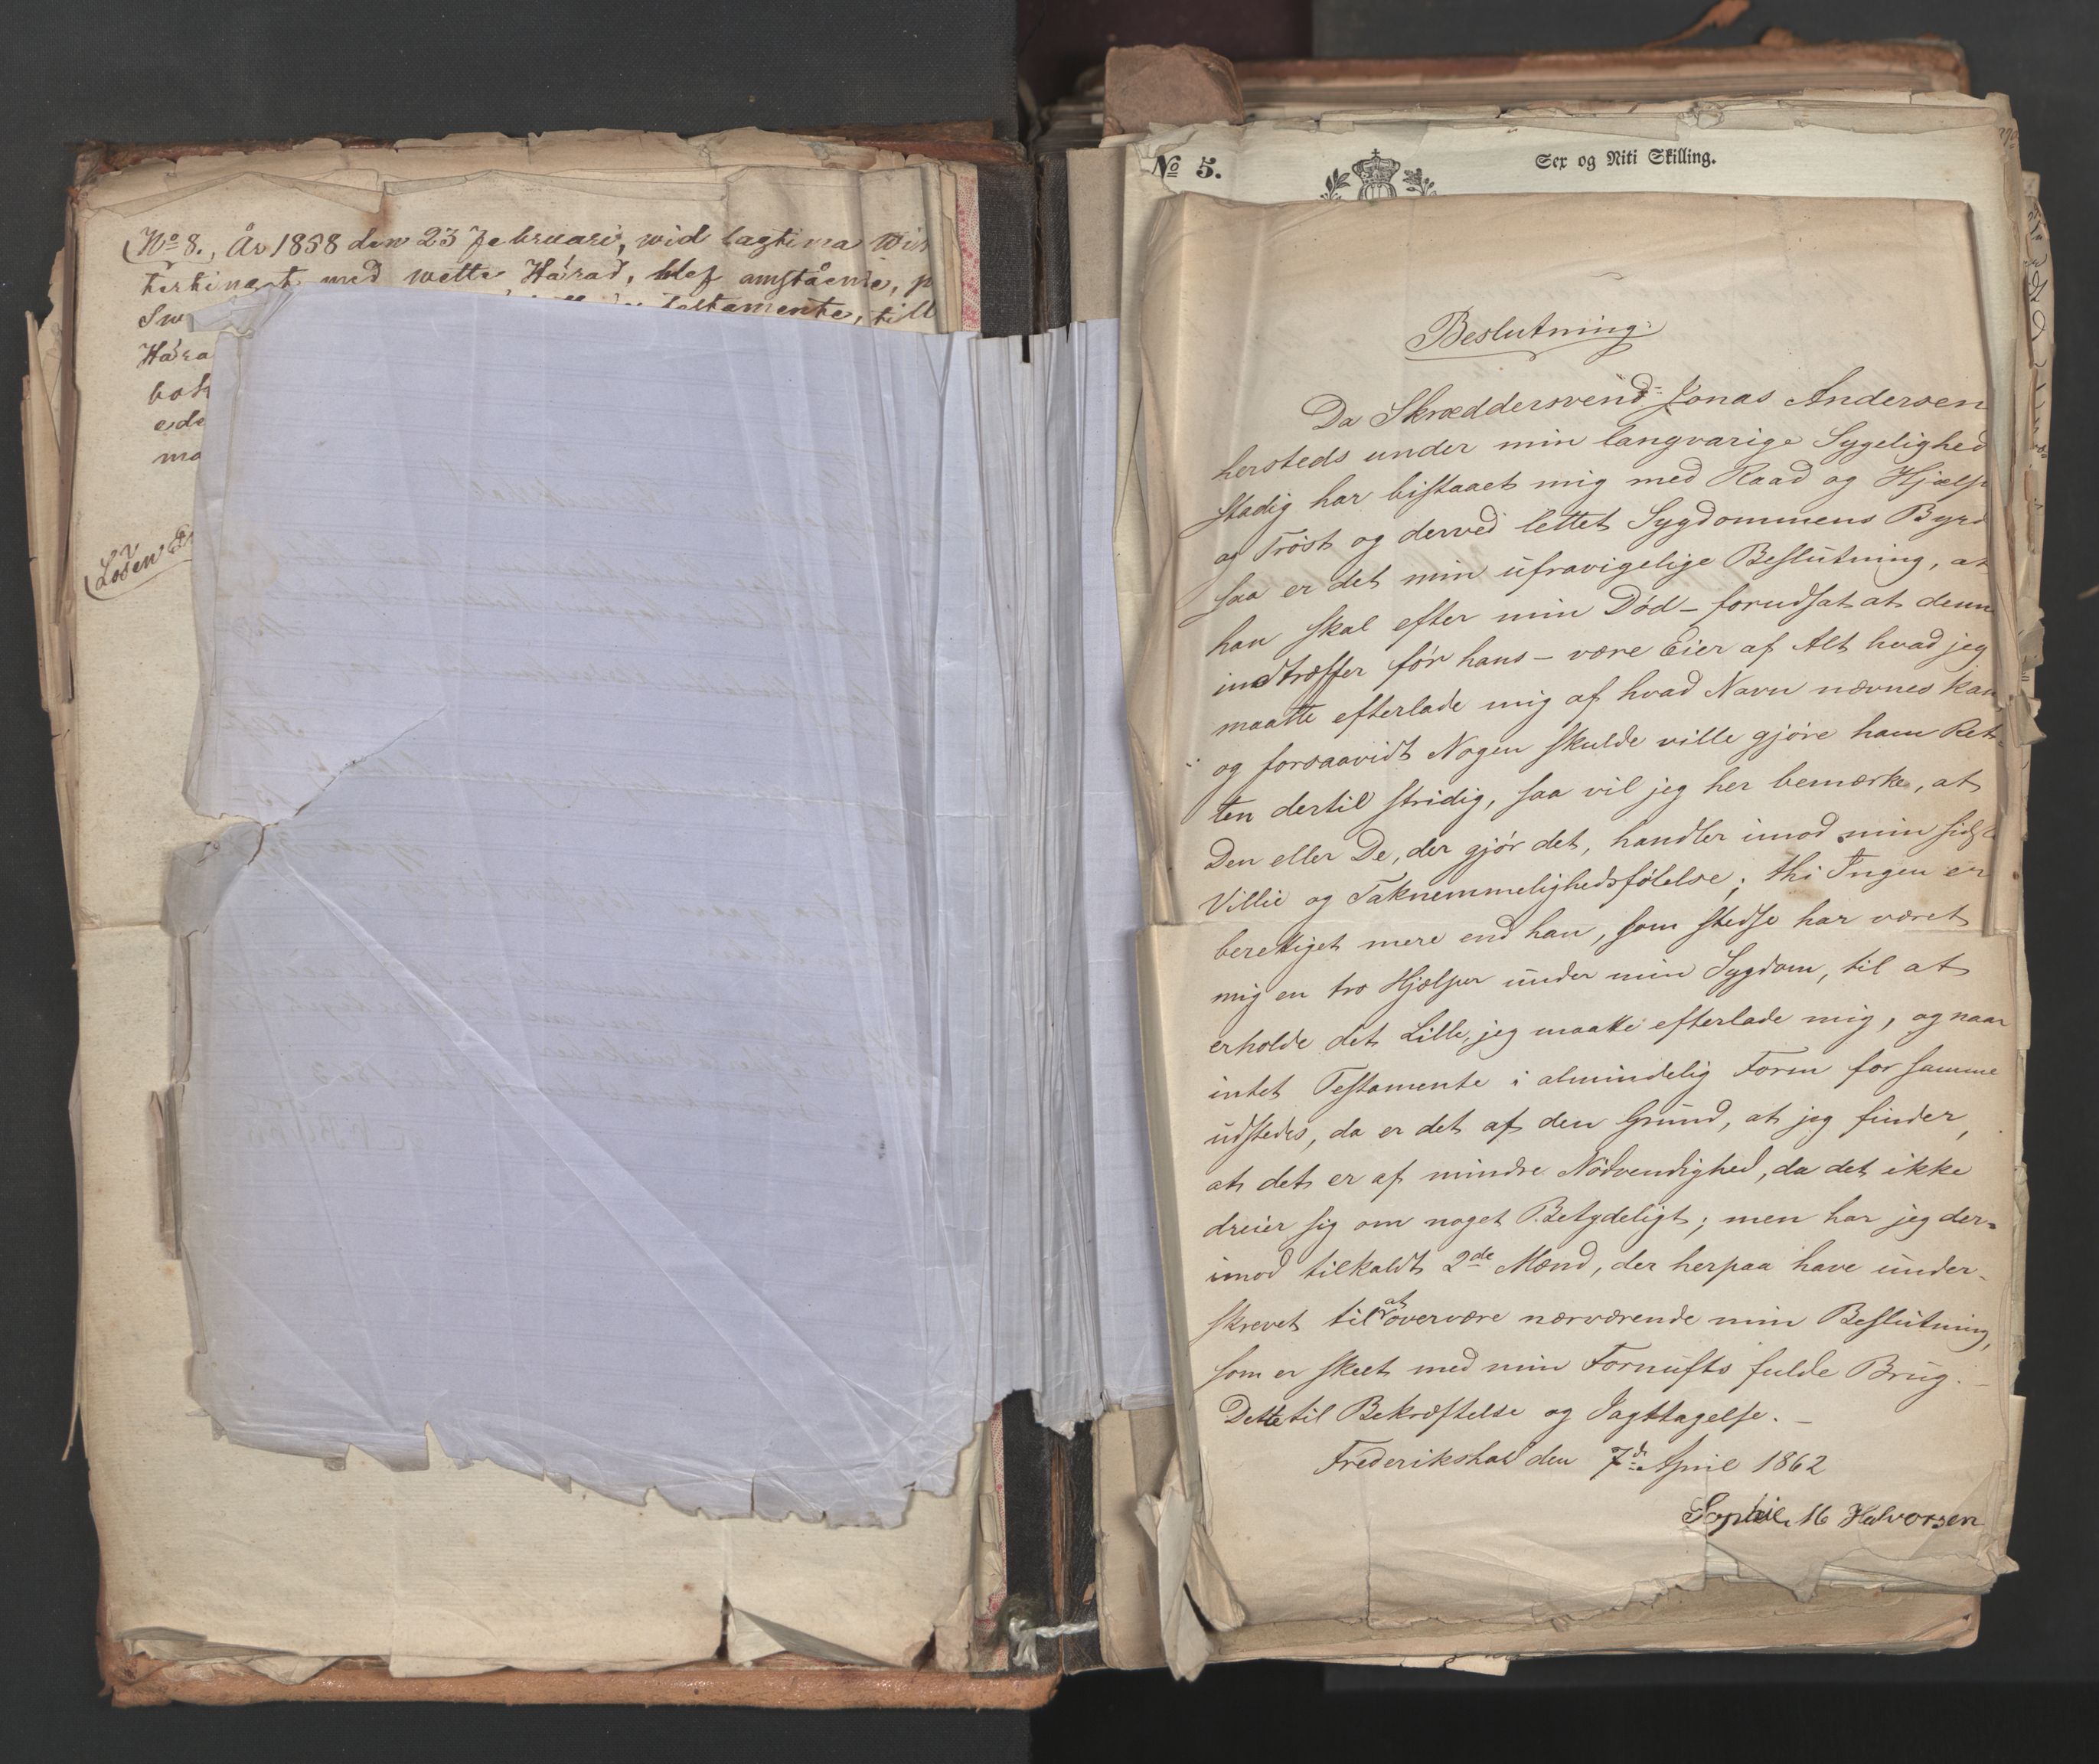 No 8., År 1858 den 23 Februari, wid lagtima Win
tertinget med wette Härad, blef omstående,
Sw testamente, till
Hära
bok
ede
ma
Lösen
No 5.
Sex og Niti Skilling.
Beslutning.
Da Skræddersvend Jonas Andersen
hersteds under min langvarige Sygelighed
stadig har bistaaet mig med Raad og Hjælp
og Trøst og derved lettet Sygdommens Byrd
saa er det min ufravigelige Beslutning, at
han skal efter min Død – forudsat at denn
indtræffer før hans – være Eier af Alt hvad jeg
maatte efterlade mig af hvad Navn nævnes kan
og forsaavidt Nogen skulde ville gjøre ham Ret-
ten dertil stridig, saa vil jeg her bemærke, at
Den eller De, der gjør det, handler imod min sidste
Villie og Taknemmelighedsfølelse; thi Ingen er
berettiget mere end han, som stedse har været
mig en tro Hjælper under min Sygdom, til at
erholde det Lille, jeg maatte efterlade mig, og naar
intet Testamente i almindelig Form for samme
udstedes, da er det af den Grund, at jeg finder,
at det er af mindre Nødvendighed, da det ikke
dreier sig om noget Betydeligt; men har jeg der=
imod tilkaldt 2de Mænd, der herpaa have under-
skrevet til at overvære nærværende min Beslutning,
som er skeet med min Fornufts fulde Brug. –
Dette til Bekræftelse og Iagttagelse. –
Frederikshald den 7d April 1862
Sophie M Halvorsen